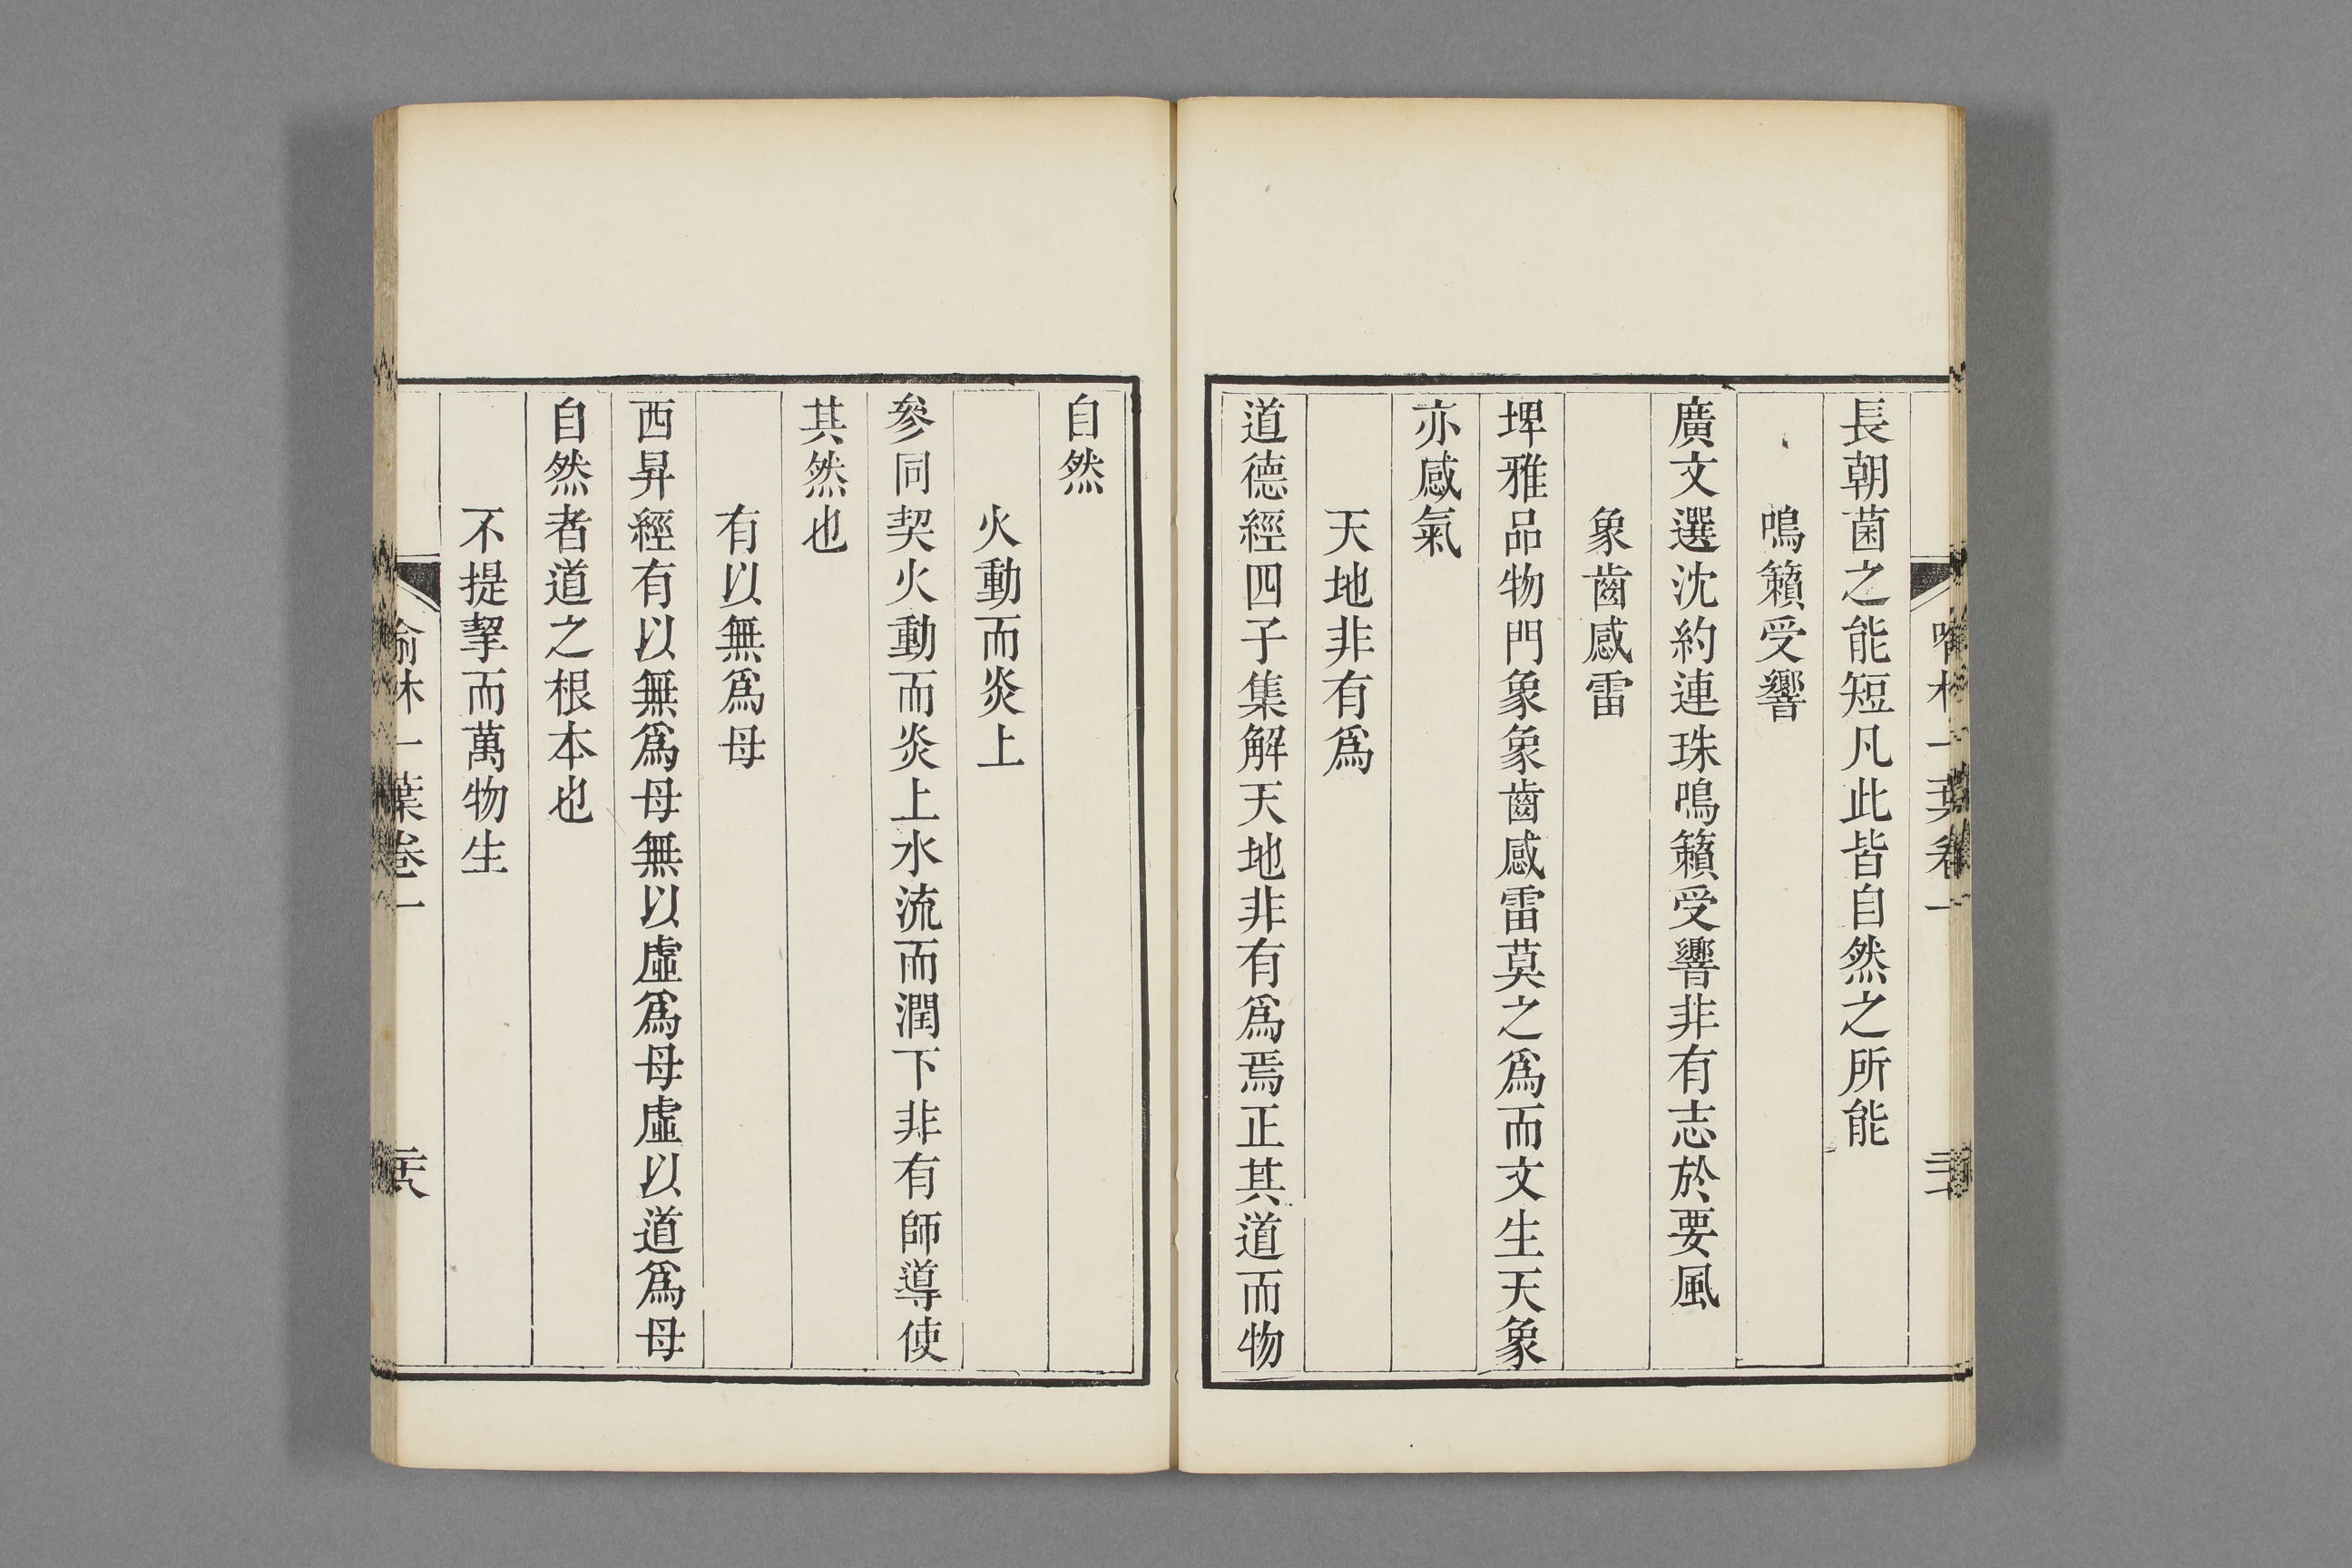 長朝菌之能短凡此皆自然之所能
鳴籟受響
廣文選沈約連珠鳴籟受響非有志於要風
象齒感雷
埤雅品物門象象齒感雷莫之爲而文生天象
亦感氣
天地非有爲
道德經四子集解天地非有爲焉正其道而物
自然
火動而炎上
參同契火動而炎上水流而潤下非有師導使
其然也
有以無爲母
西昇經有以無爲母無以虛爲母虛以道爲母
自然者道之根本也
不提挈而萬物生
林一葉卷一